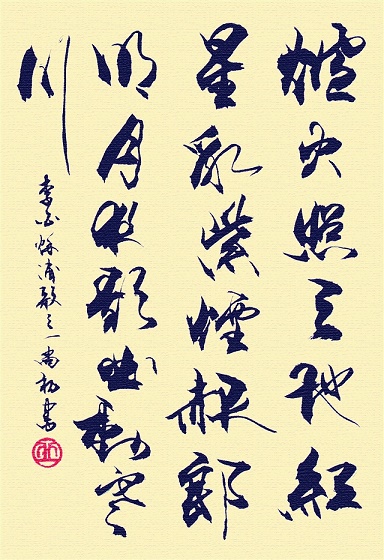 爐火照天地紅
星乱紫煙赧郎
明月夜歌曲動寒
川
李白秋浦歌之一尚書